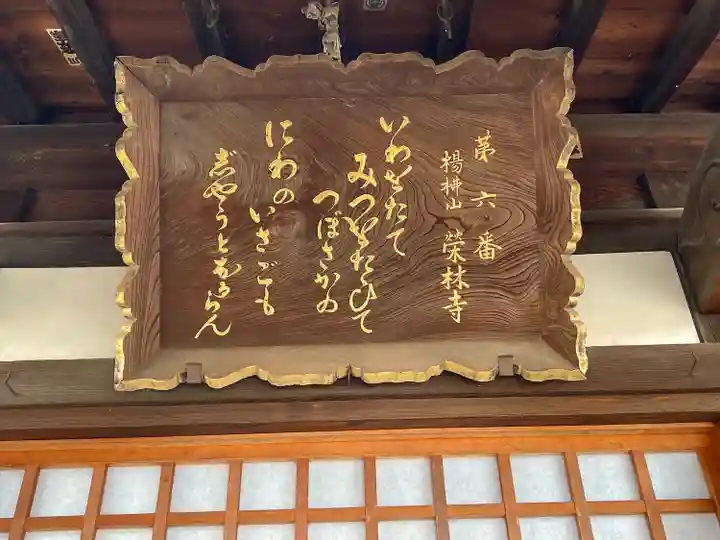 第六番
揚柳山 榮林寺
いわをたて
みづをたゝへて
つぼさかの
にわの
いさごも
じやうどなるらん